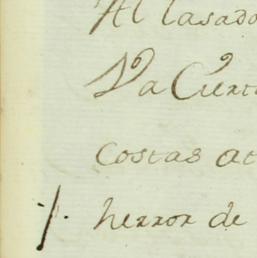 Al lasado
Va Ciert
costas at
herror de